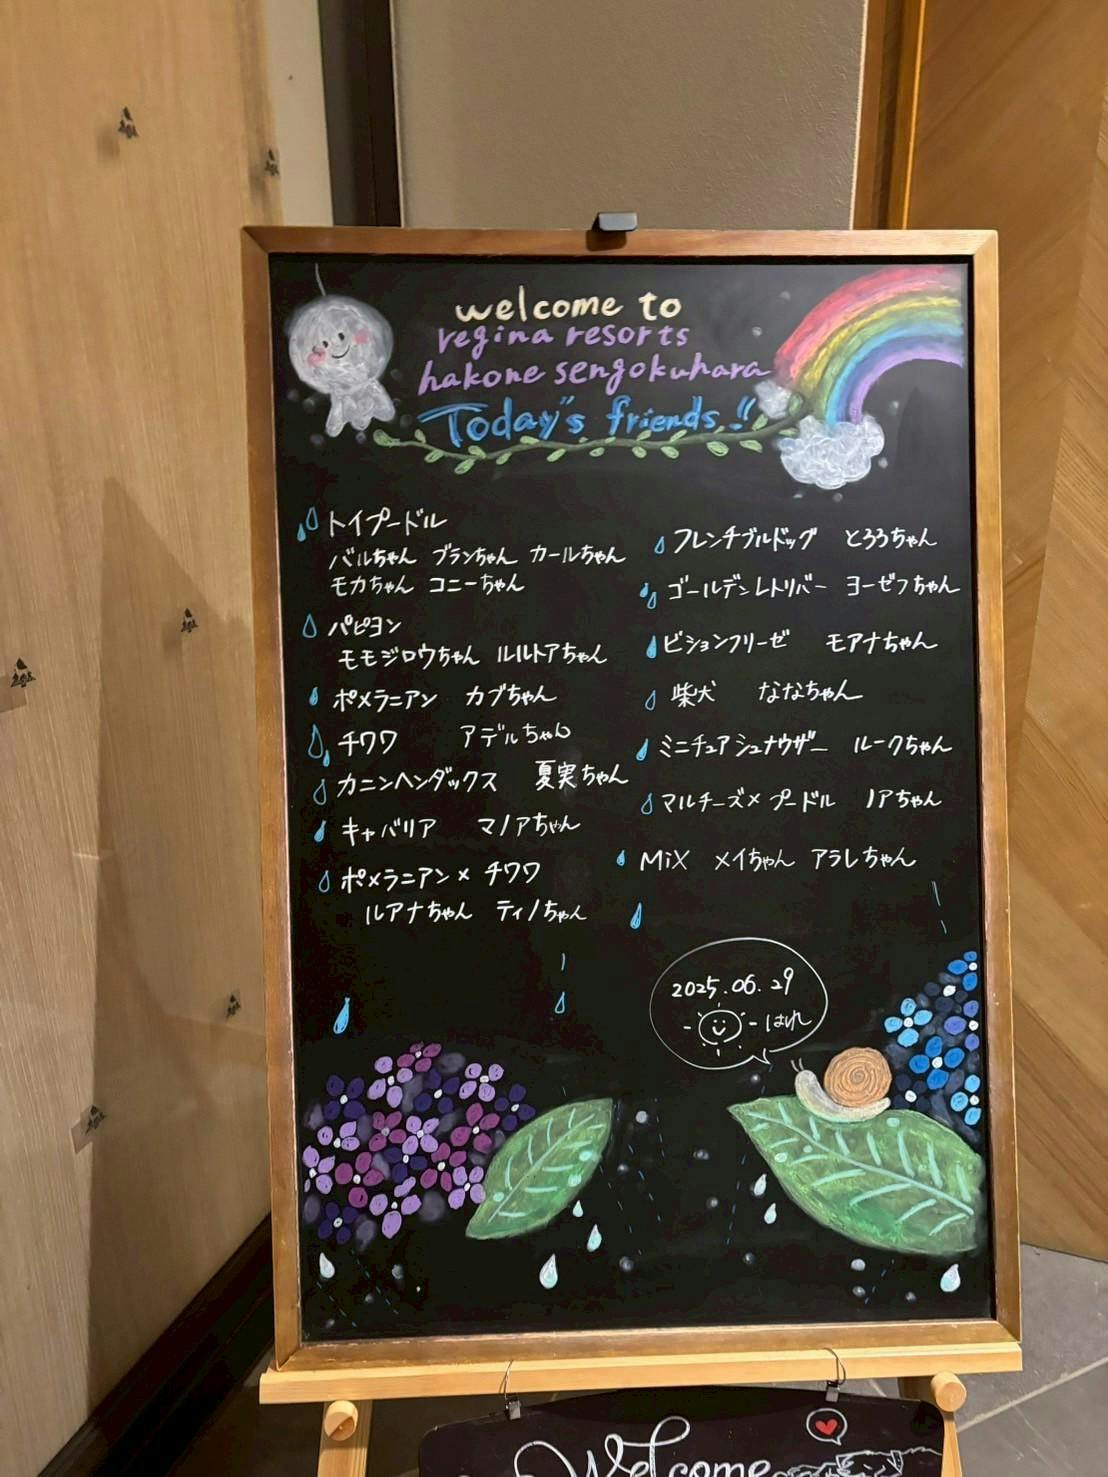 welcome to
regina resorts
hakone sengokuhara
Today's friends!!
トイプードル
バルちゃん ブランちゃん カールちゃん
モカちゃん コニーちゃん
パピヨン
モモジロウちゃん ルルトアちゃん
ポメラニアン カブちゃん
チワワ アデルちゃん
カニンヘンダックス 夏実ちゃん
キャバリア マノアちゃん
ポメラニアン× チワワ
ルアナちゃん ティノちゃん
フレンチブルドッグ とろろちゃん
ゴールデンレトリバー ヨーゼフちゃん
ビションフリーゼ モアナちゃん
柴犬 ななちゃん
ミニチュアシュナウザー ルークちゃん
マルチーズ× プードル ノアちゃん
MiX メイちゃん アラレちゃん
2025.06.29
はれ
Welcome